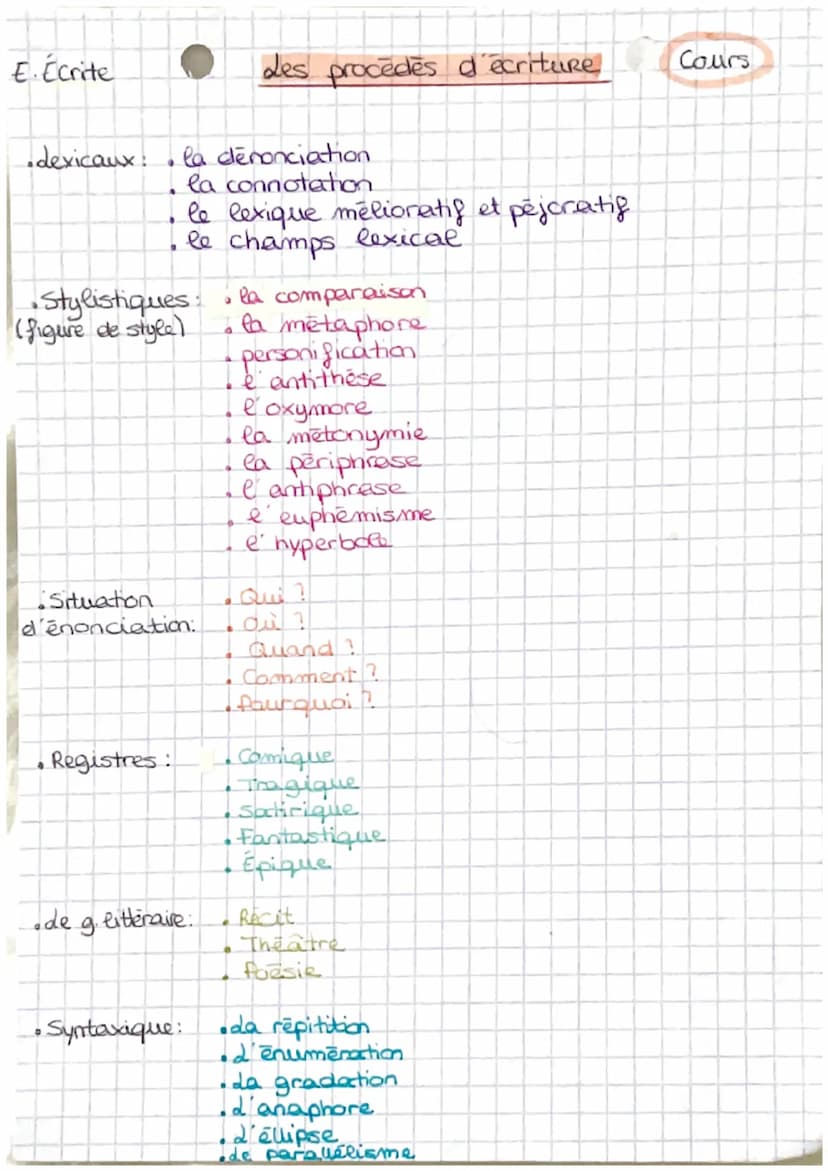 E. Écrite
Les procédés d'écriture
Cours
• Lexicaux : • la dénonciation
• la connotation
• le lexique mélioratif et péjoratif
• le champs lexical
• Stylistiques : • la comparaison
(figure de style) • la métaphore
• personification
• l'antithèse
• l'oxymore
• la métonymie
• la périphrase
• l'antiphrase
• l'euphémisme
• l'hyperbole
• Situation • Qui ?
d'énonciation: • Où ?
• Quand ?
• Comment ?
• Pourquoi ?
• Registres : • Comique
• Tragique
• Satirique
• Fantastique
• Épique
• Le g. littéraire: • Récit
• Théâtre
• Poésie
• Syntaxique: • La répitition
• L'énumération
• La gradation
• L'anaphore
• L'éllipse
• Le parallélisme